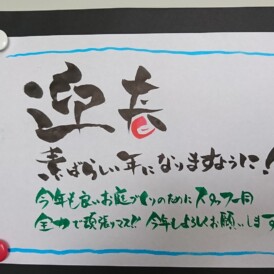 迎春
素ばらしい年になりますように!!
今年も良いお庭づくりのためにスタッフ一同
全力で頑張ってマス!! 今年もよろしくお願いします